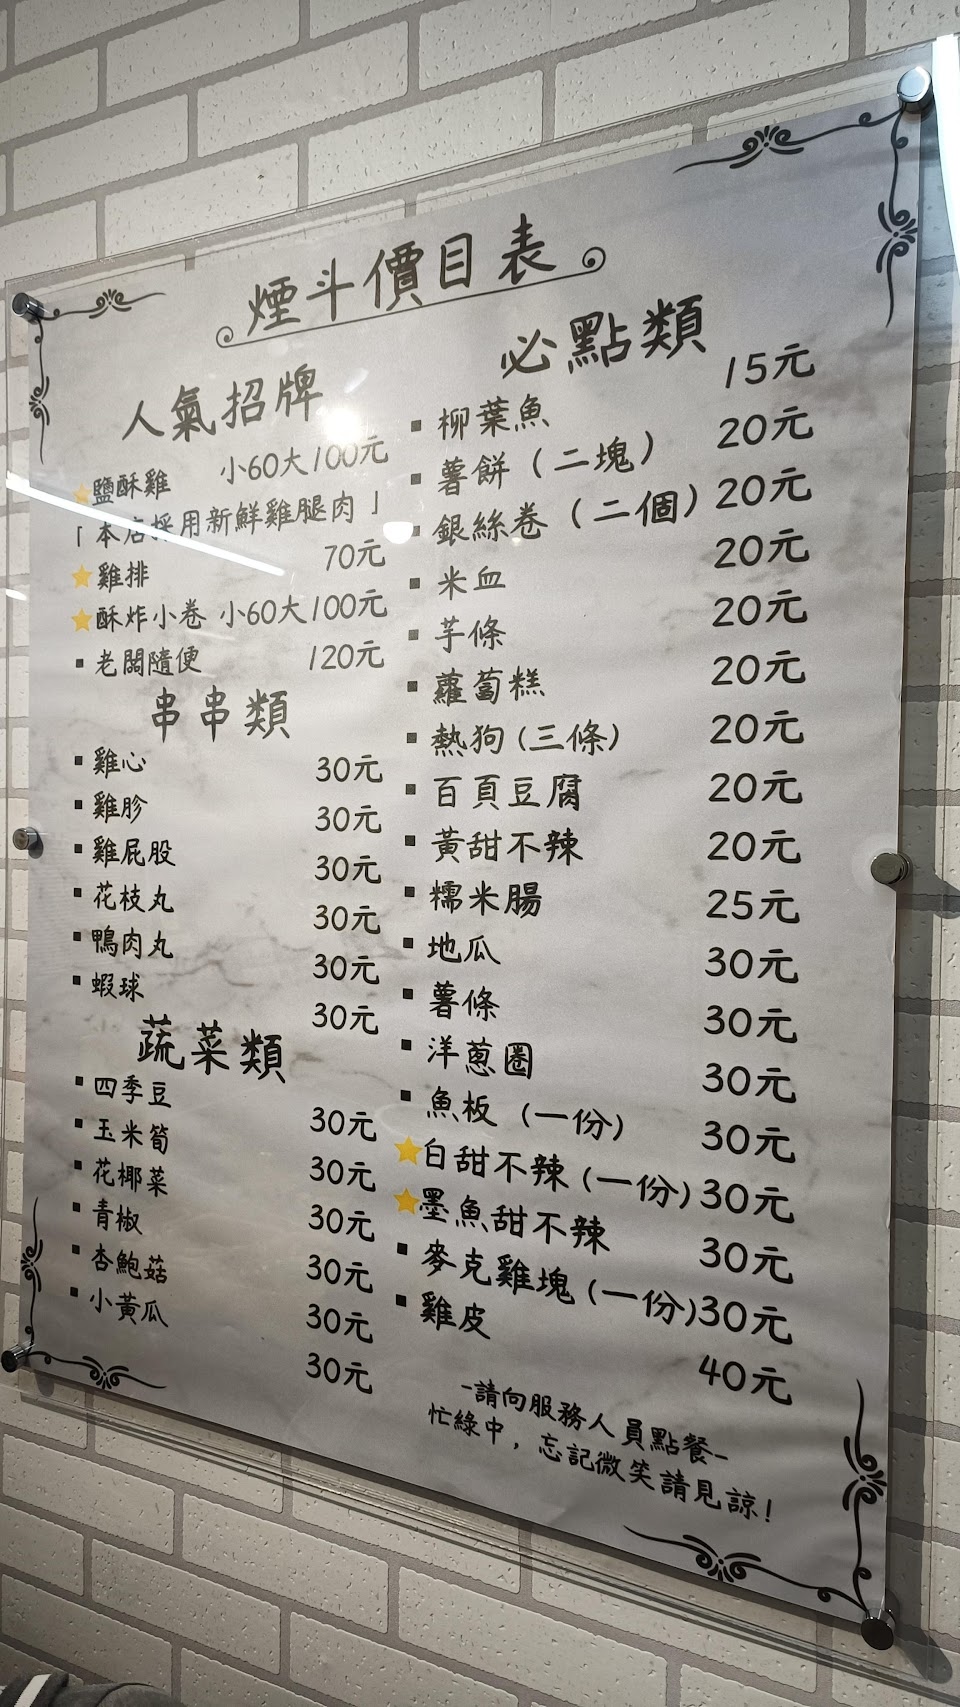 煙斗價目表
人氣招牌
鹽酥雞 小60大100元
「本店採用新鮮雞腿肉」
雞排 70元
酥炸小卷 小60大100元
老闆隨便 120元
串串類
雞心 30元
雞胗 30元
雞屁股 30元
花枝丸 30元
鴨肉丸 30元
蝦球 30元
蔬菜類
四季豆 30元
玉米筍 30元
花椰菜 30元
青椒 30元
杏鮑菇 30元
小黃瓜 30元
必點類
柳葉魚 15元
薯餅（二塊） 20元
銀絲卷（二個） 20元
米血 20元
芋條 20元
蘿蔔糕 20元
熱狗(三條) 20元
百頁豆腐 20元
黃甜不辣 20元
糯米腸 25元
地瓜 30元
薯條 30元
洋蔥圈 30元
魚板 (一份) 30元
白甜不辣 (一份) 30元
墨魚甜不辣 30元
麥克雞塊 (一份) 30元
雞皮 40元
-請向服務人員點餐-
忙綠中，忘記微笑請見諒！